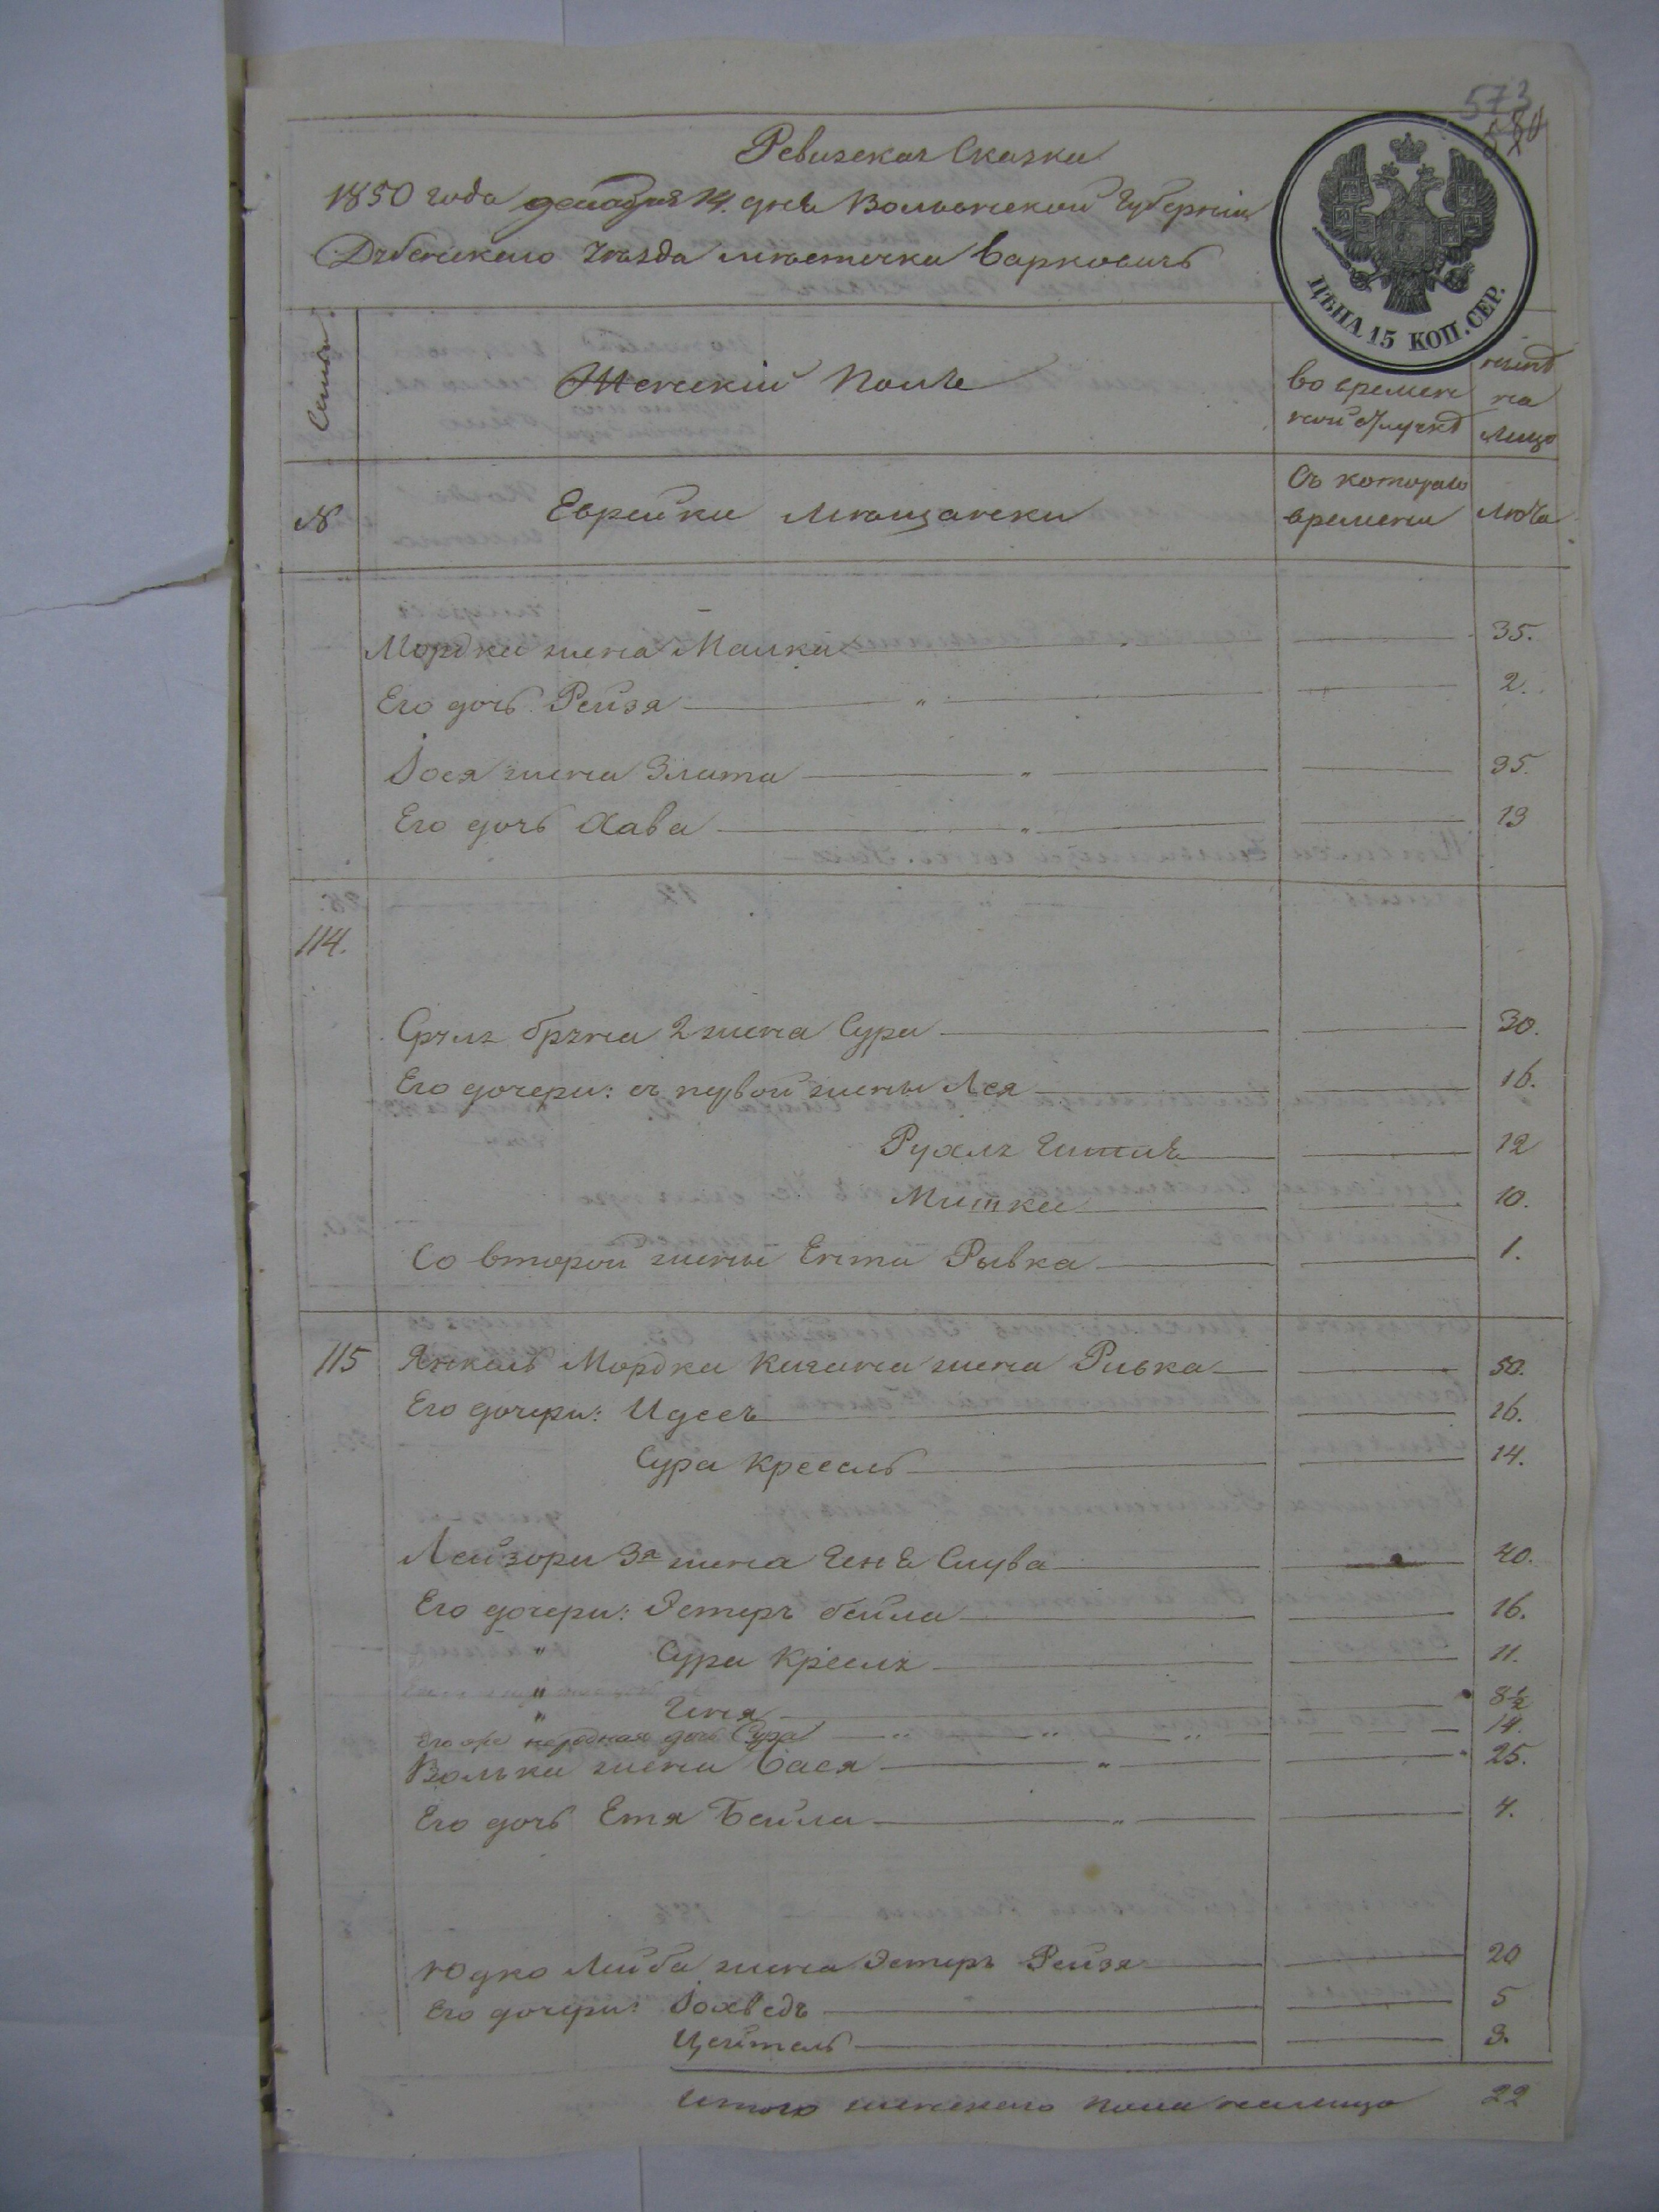 573
580
Ревизская Сказка
1850 года декабря 14. дня Волынской Губерніи
Дубенскаго Уѣзда мѣстечка Варковичъ
ЦѢНА 15 КОП. СЕР.
Семьи
Женскій Полъ
во времен
ной отлучкѣ
нынѣ
на
лицо
№
Еврейки мѣщански
Съ котораго
времени
лѣта
Мордки жена Малка 35.
Его дочь Рейзя " 2.
Іося жена Злата " 35.
Его дочь Хава " 13
114.
Сруль жена 2 жена Сура 30.
Его дочери: съ первой жены Лея 16.
Рухля 12
Митка 10.
Со второй жены Ента Рывка 1.
115 Янкель Мордка жена Ривка 50.
Его дочери: Идесъ 16.
Сура Кресель 14.
Лейзора 3я жена Геня Слува 40.
Его дочери: Эстеръ бейла 16.
" Сура Кресля 11.
" Геня 8½
Его дочь Сура " " " 14.
Волька жена Бася " 25.
Его дочь Етя Бейла " 4.
Юдко Лейба жена Эстеръ Рейзя 20
Его дочери: Іохведъ 5
Цейтель 3.
Итого женскаго пола налицо 22